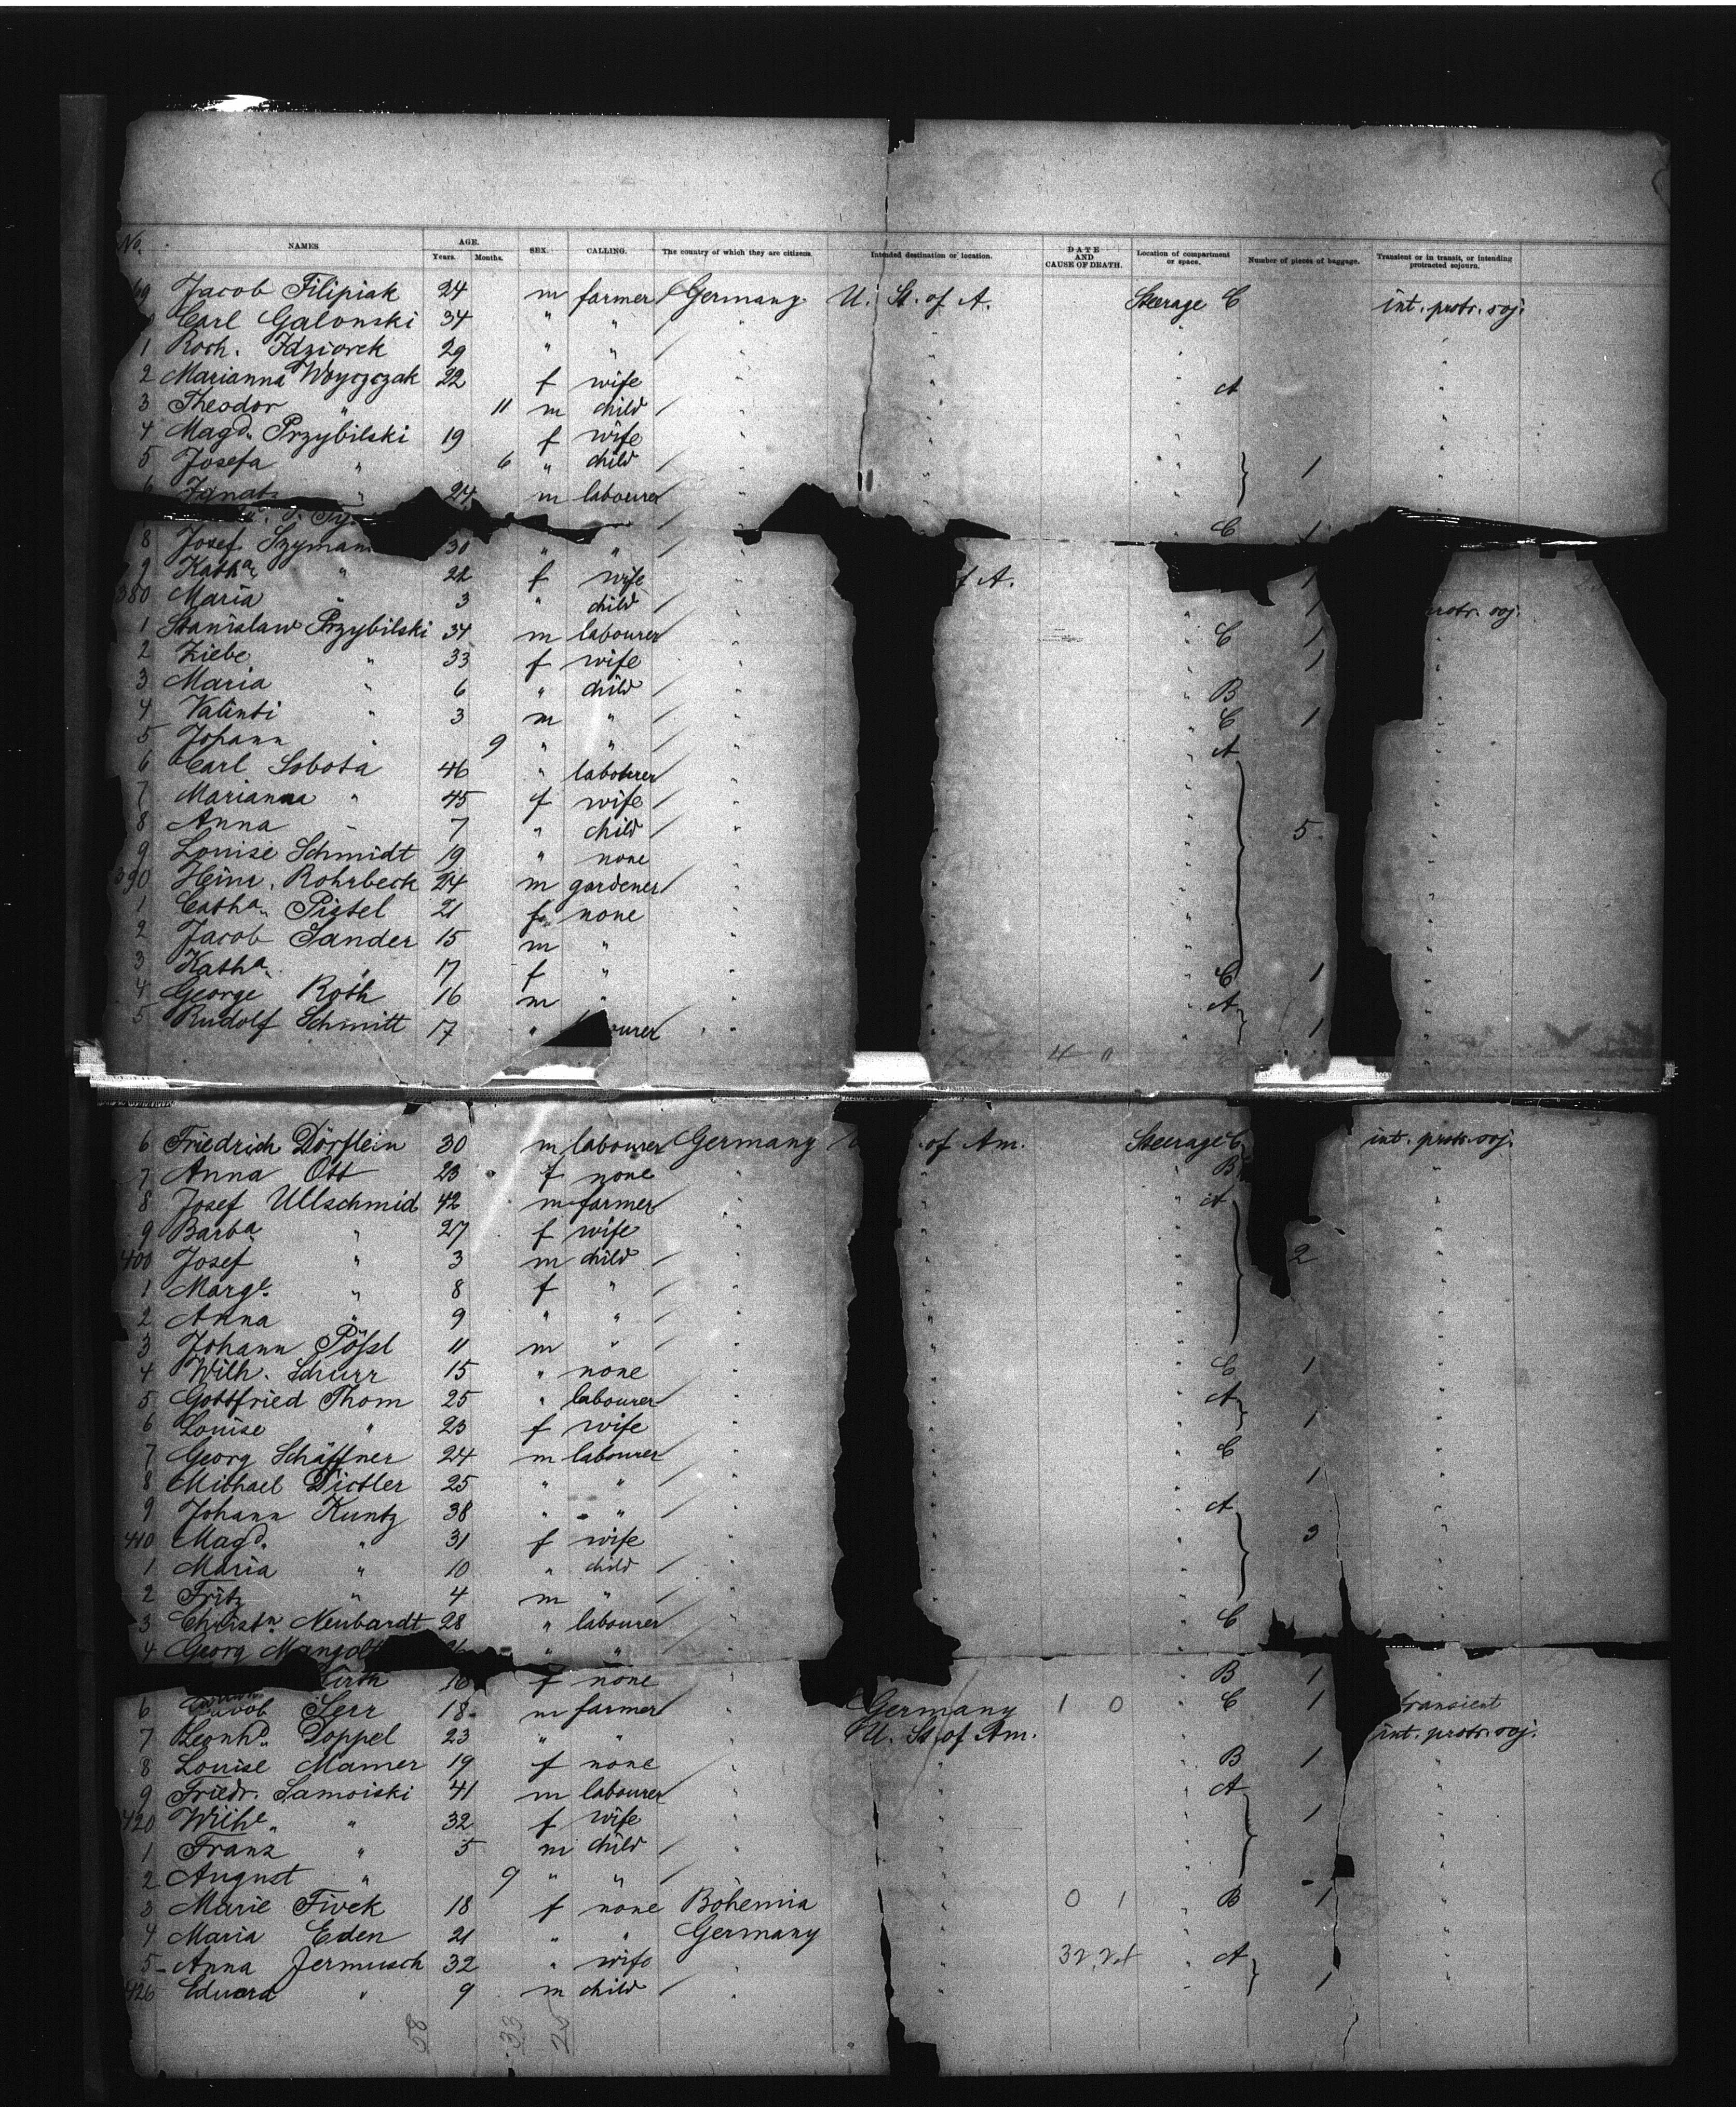 No. NAMES AGE. Years. Months. SEX. CALLING. The country of which they are citizens. Intended destination or location. DATE AND CAUSE OF DEATH. Location of compartment or space. Number of pieces of baggage. Transient or in transit, or intending protracted sojourn.
69 Jacob Filipiak 24 m farmer / Germany U. St. of A. Steerage C int. protr. soj.
Carl Galonski 34 " " "
1 Roch. Idziorek 29 " " / "
2 Marianna Woyczczak 22 f wife " A
3 Theodor " 11 m child / "
4 Magd. Przybilski 19 f wife "
5 Josefa " 6 " child / " 1
6 Ignatz " 24 m labourer
C 1
8 Josef Szyman 30 " " /
9 Katha " 22 f wife " f A. 1
380 Maria " 3 " child / " 1 protr. soj.
1 Stanislaw Przybilski 34 m labourer " C 1
2 Ziebe " 33 f wife " 1
3 Maria " 6 " child / " B
4 Valinti " 3 m " / " C 1
5 Johann " 9 " " / " A
6 Carl Sobota 46 " labourer "
7 Marianna " 45 f wife / "
8 Anna " 7 " child / " 5
9 Louise Schmidt 19 " none "
390 Heinr. Rohrbeck 24 m gardener / "
1 Catha. Pistel 21 f none "
2 Jacob Sander 15 m " "
3 Katha. " 17 f " " C 1
4 George Roth 16 m " " A
5 Rudolf Schmitt 17 " urer " 1
4 "
6 Friedrich Dörflein 30 m labourer Germany of Am. Steerage C int. protr. soj.
7 Anna Ott 23 f none " B
8 Josef Ullschmid 42 m farmer " A
9 Barba " 27 f wife "
400 Josef " 3 m child / " 2
1 Marge. " 8 f " / "
2 Anna " 9 " " / "
3 Johann Pößl 11 m " / "
4 Wilh. Schurr 15 " none " C 1
5 Gottfried Thom 25 " labourer " A
6 Louise " 23 f wife " 1
7 Georg Schäffner 24 m labourer " C
8 Michael Dictler 25 " " / " 1
9 Johann Kuntz 38 " " / " A
410 Magd. " 31 f wife " 3
1 Maria " 10 " child / "
2 Fritz " 4 m " / "
3 Christn. Neubardt 28 " labourer " C
4 Georg Mangol " "
irth 16 f none " B 1
6 Jacob Serr 18 m farmer " Germany 1 0 C 1 transient
7 Leonhd. Doppel 23 " " U. St of Am. int. protr. soj.
8 Louise Mamer 19 f none " B 1
9 Friedr. Samoiski 41 m labourer " A
420 Wilhe. " 32 f wife " 1
1 Franz " 5 m child / "
2 August " 9 " " /
3 Marie Fivek 18 f none Bohemia 0 1 B 1
4 Maria Eden 21 " " Germany
5 Anna Jermusch 32 " wife " A
426 Eduard " 9 m child / " 1
58 33